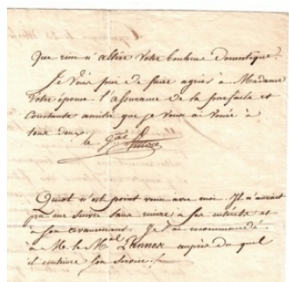 Que rien n'altère votre bonheur domestique.
Je vous prie de faire agréer à Madame
votre épouse l'assurance de la parfaite et
constante amitié que je vous ai vouée à
tous deux.
le Gal
n'est point venu avec moi. Il n'aurait
pu me suivre sans nuire à ses intérêts et
à son avancement. Je l'ai recommandé
à Mr. le Mal Lannes auprès du quel
il continue son service.